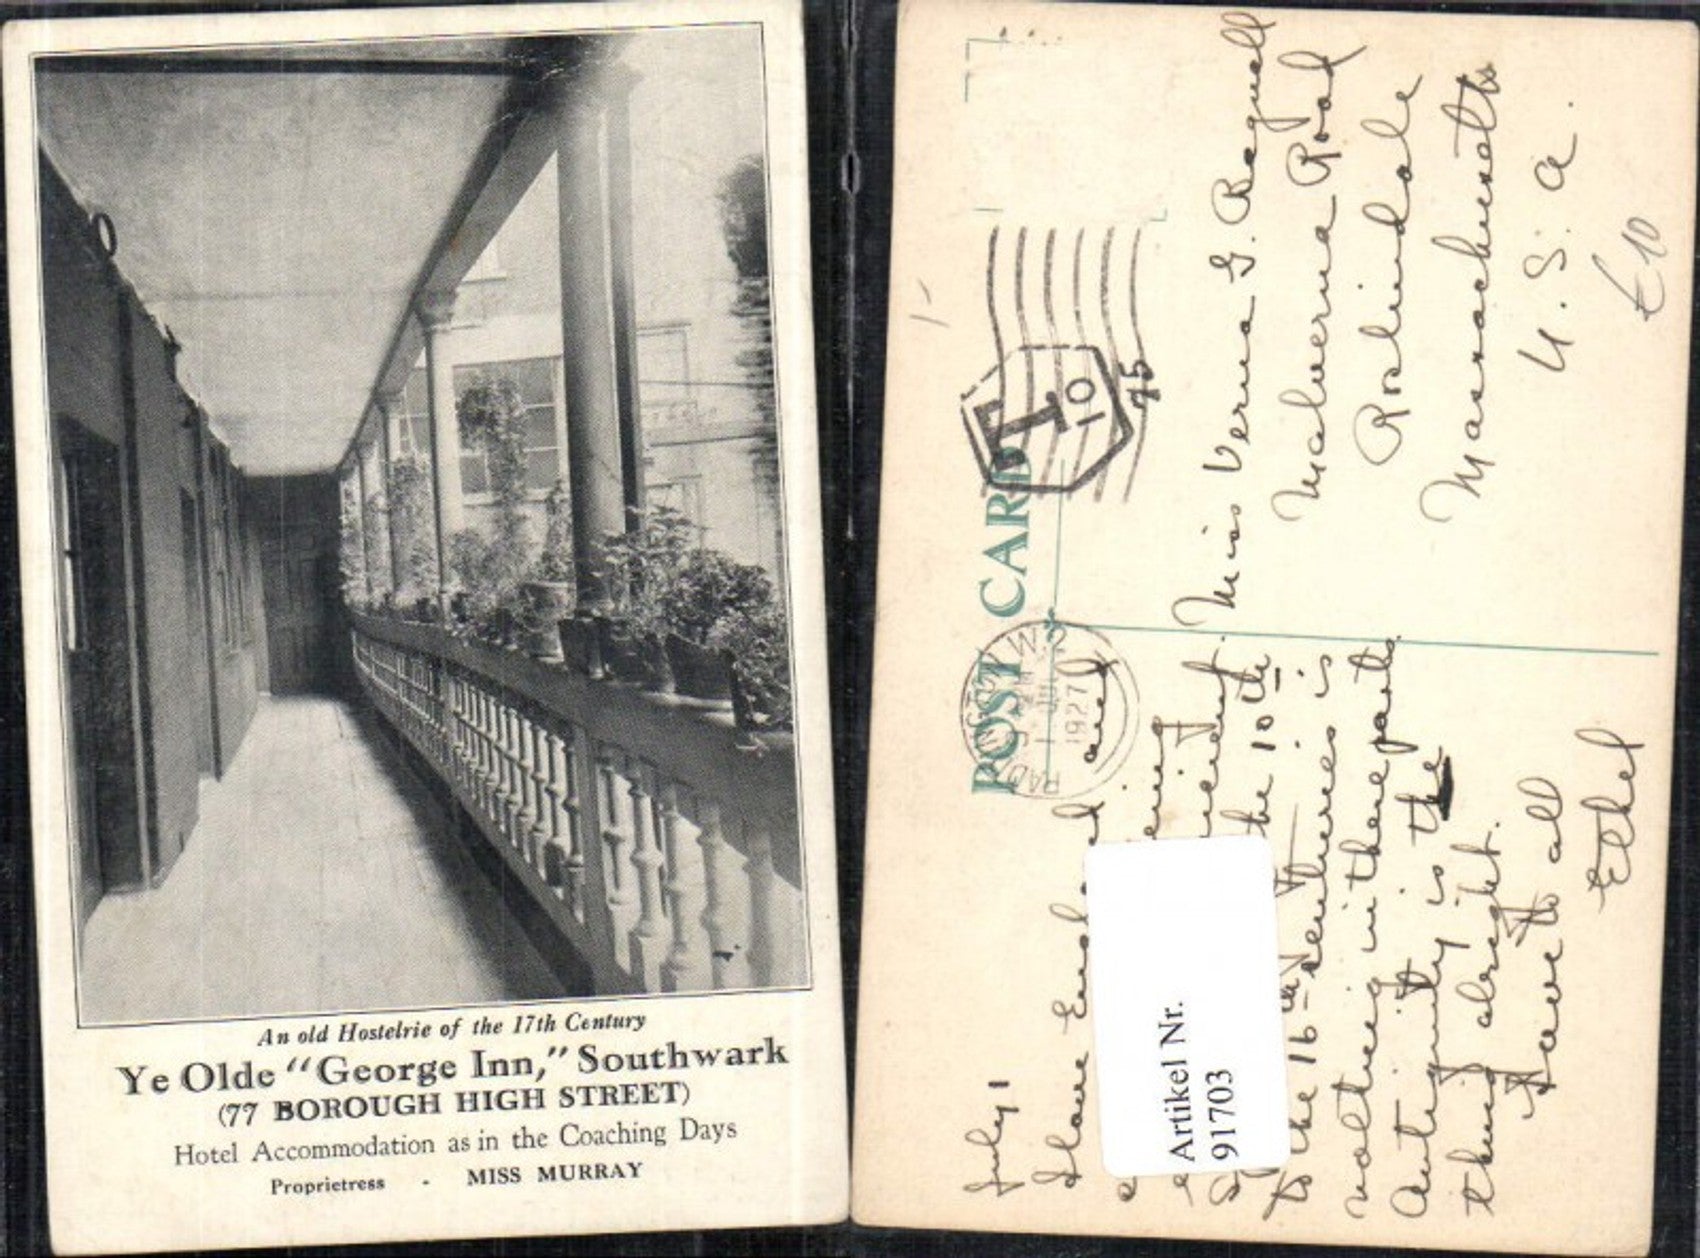 An old Hostelrie of the 17th Century
Ye Olde "George Inn," Southwark
(77 BOROUGH HIGH STREET)
Hotel Accommodation as in the Coaching Days
Proprietress - MISS MURRAY
POST CARD
T
10
75
1927
PADDINGTON W.2
1-
£10
Miss Verna G. Bagnall
Malverna Road
Roslindale
Massachusetts
U. S. A.
July 1
and
the 10th
to the 16th centuries is
nothing in these parts.
Antiquity is the
thing alright.
Love to all
Ethel
Artikel Nr.
91703